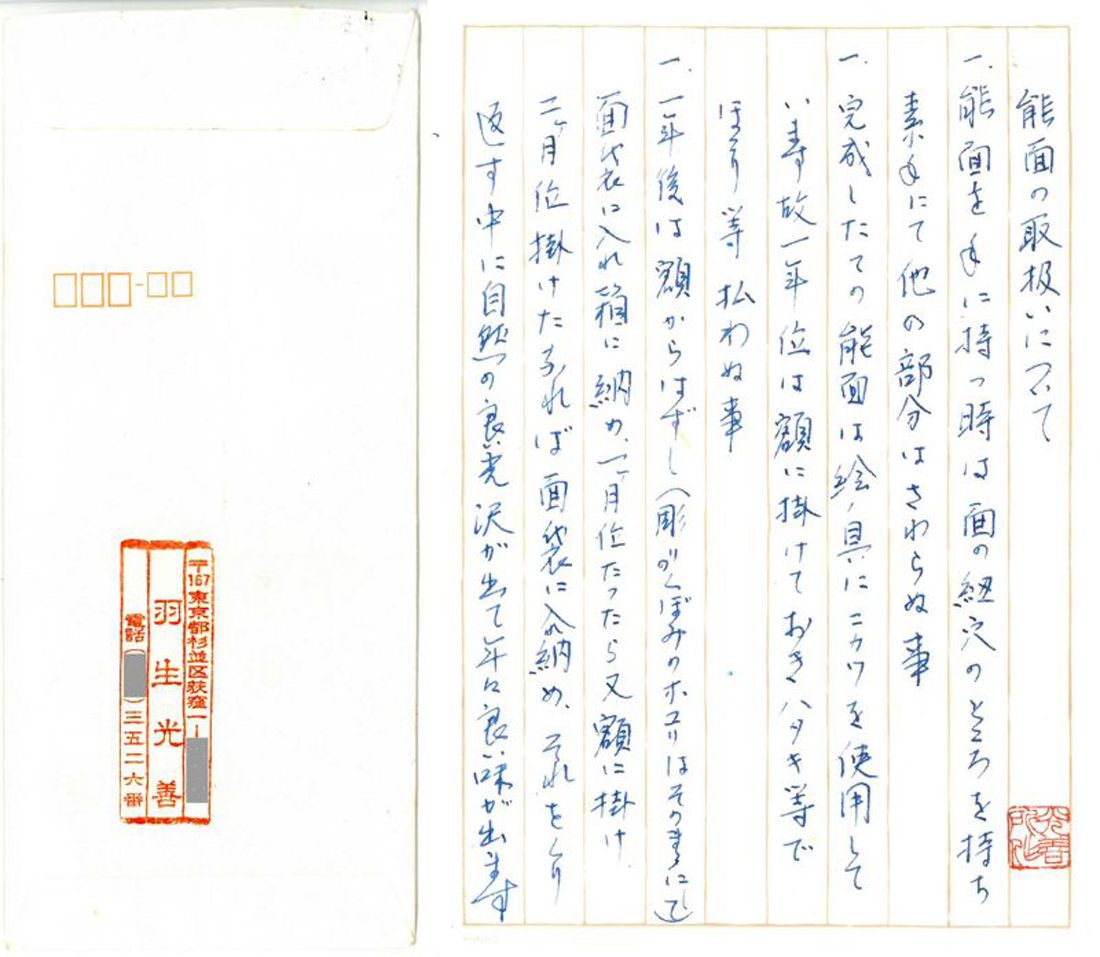 能面の取扱いについて
一.能面を手に持つ時は面の紐穴のところを持ち
素手にて他の部分はさわらぬ事
一.完成したての能面は絵ノ具にニカワを使用して
います故一年位は額に掛けておきハタキ等で
ほこり等払わぬ事
一.一年後は額からはずし(彫りのくぼみのホコリはそのまゝに)
面袋に入れ箱に納め、一ヶ月位たったら又額に掛け
二ヶ月位掛けたなれば面袋に入れ納め、それをくり
返す中に自然の良い光沢が出て年に良い味が出ます
〒167東京都杉並区荻窪一-
羽生光善
電話()三五二六番